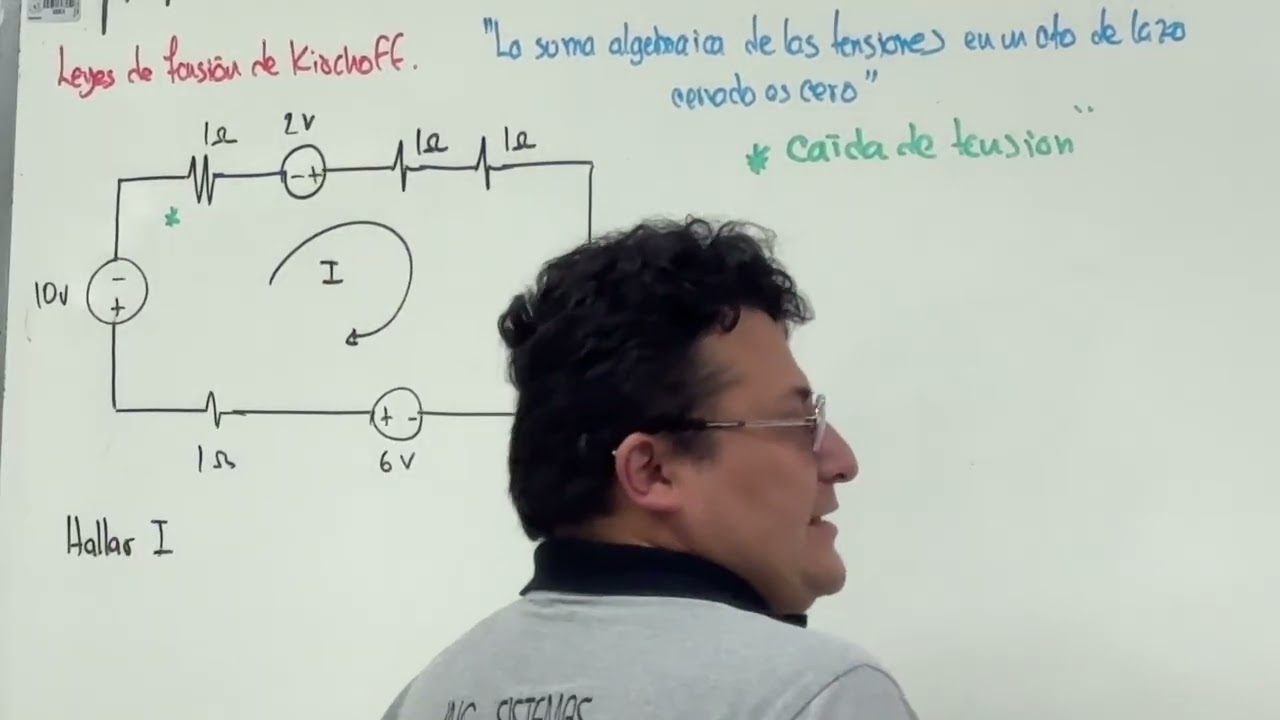 Leyes de tensión de Kirchoff.
"La suma algebraica de las tensiones en un cto de lazo
cerrado es cero"
* Caída de tension"
1Ω
2V
1Ω
1Ω
*
- +
10v
-
+
I
+ -
1Ω
6V
Hallar I
ING SISTEMAS